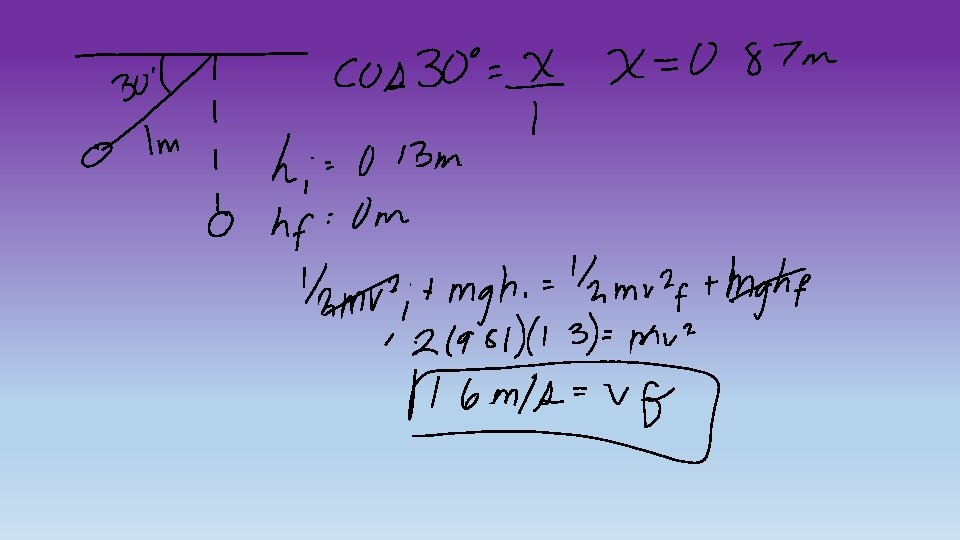 30°
1m
cos 30° = x/1 x = 0 87m
hi = 0 13m
hf = 0m
1/2mv²i + mghi = 1/2mv²f + mghf
2(9 81)(1 3) = mv²
1 6 m/s = vf